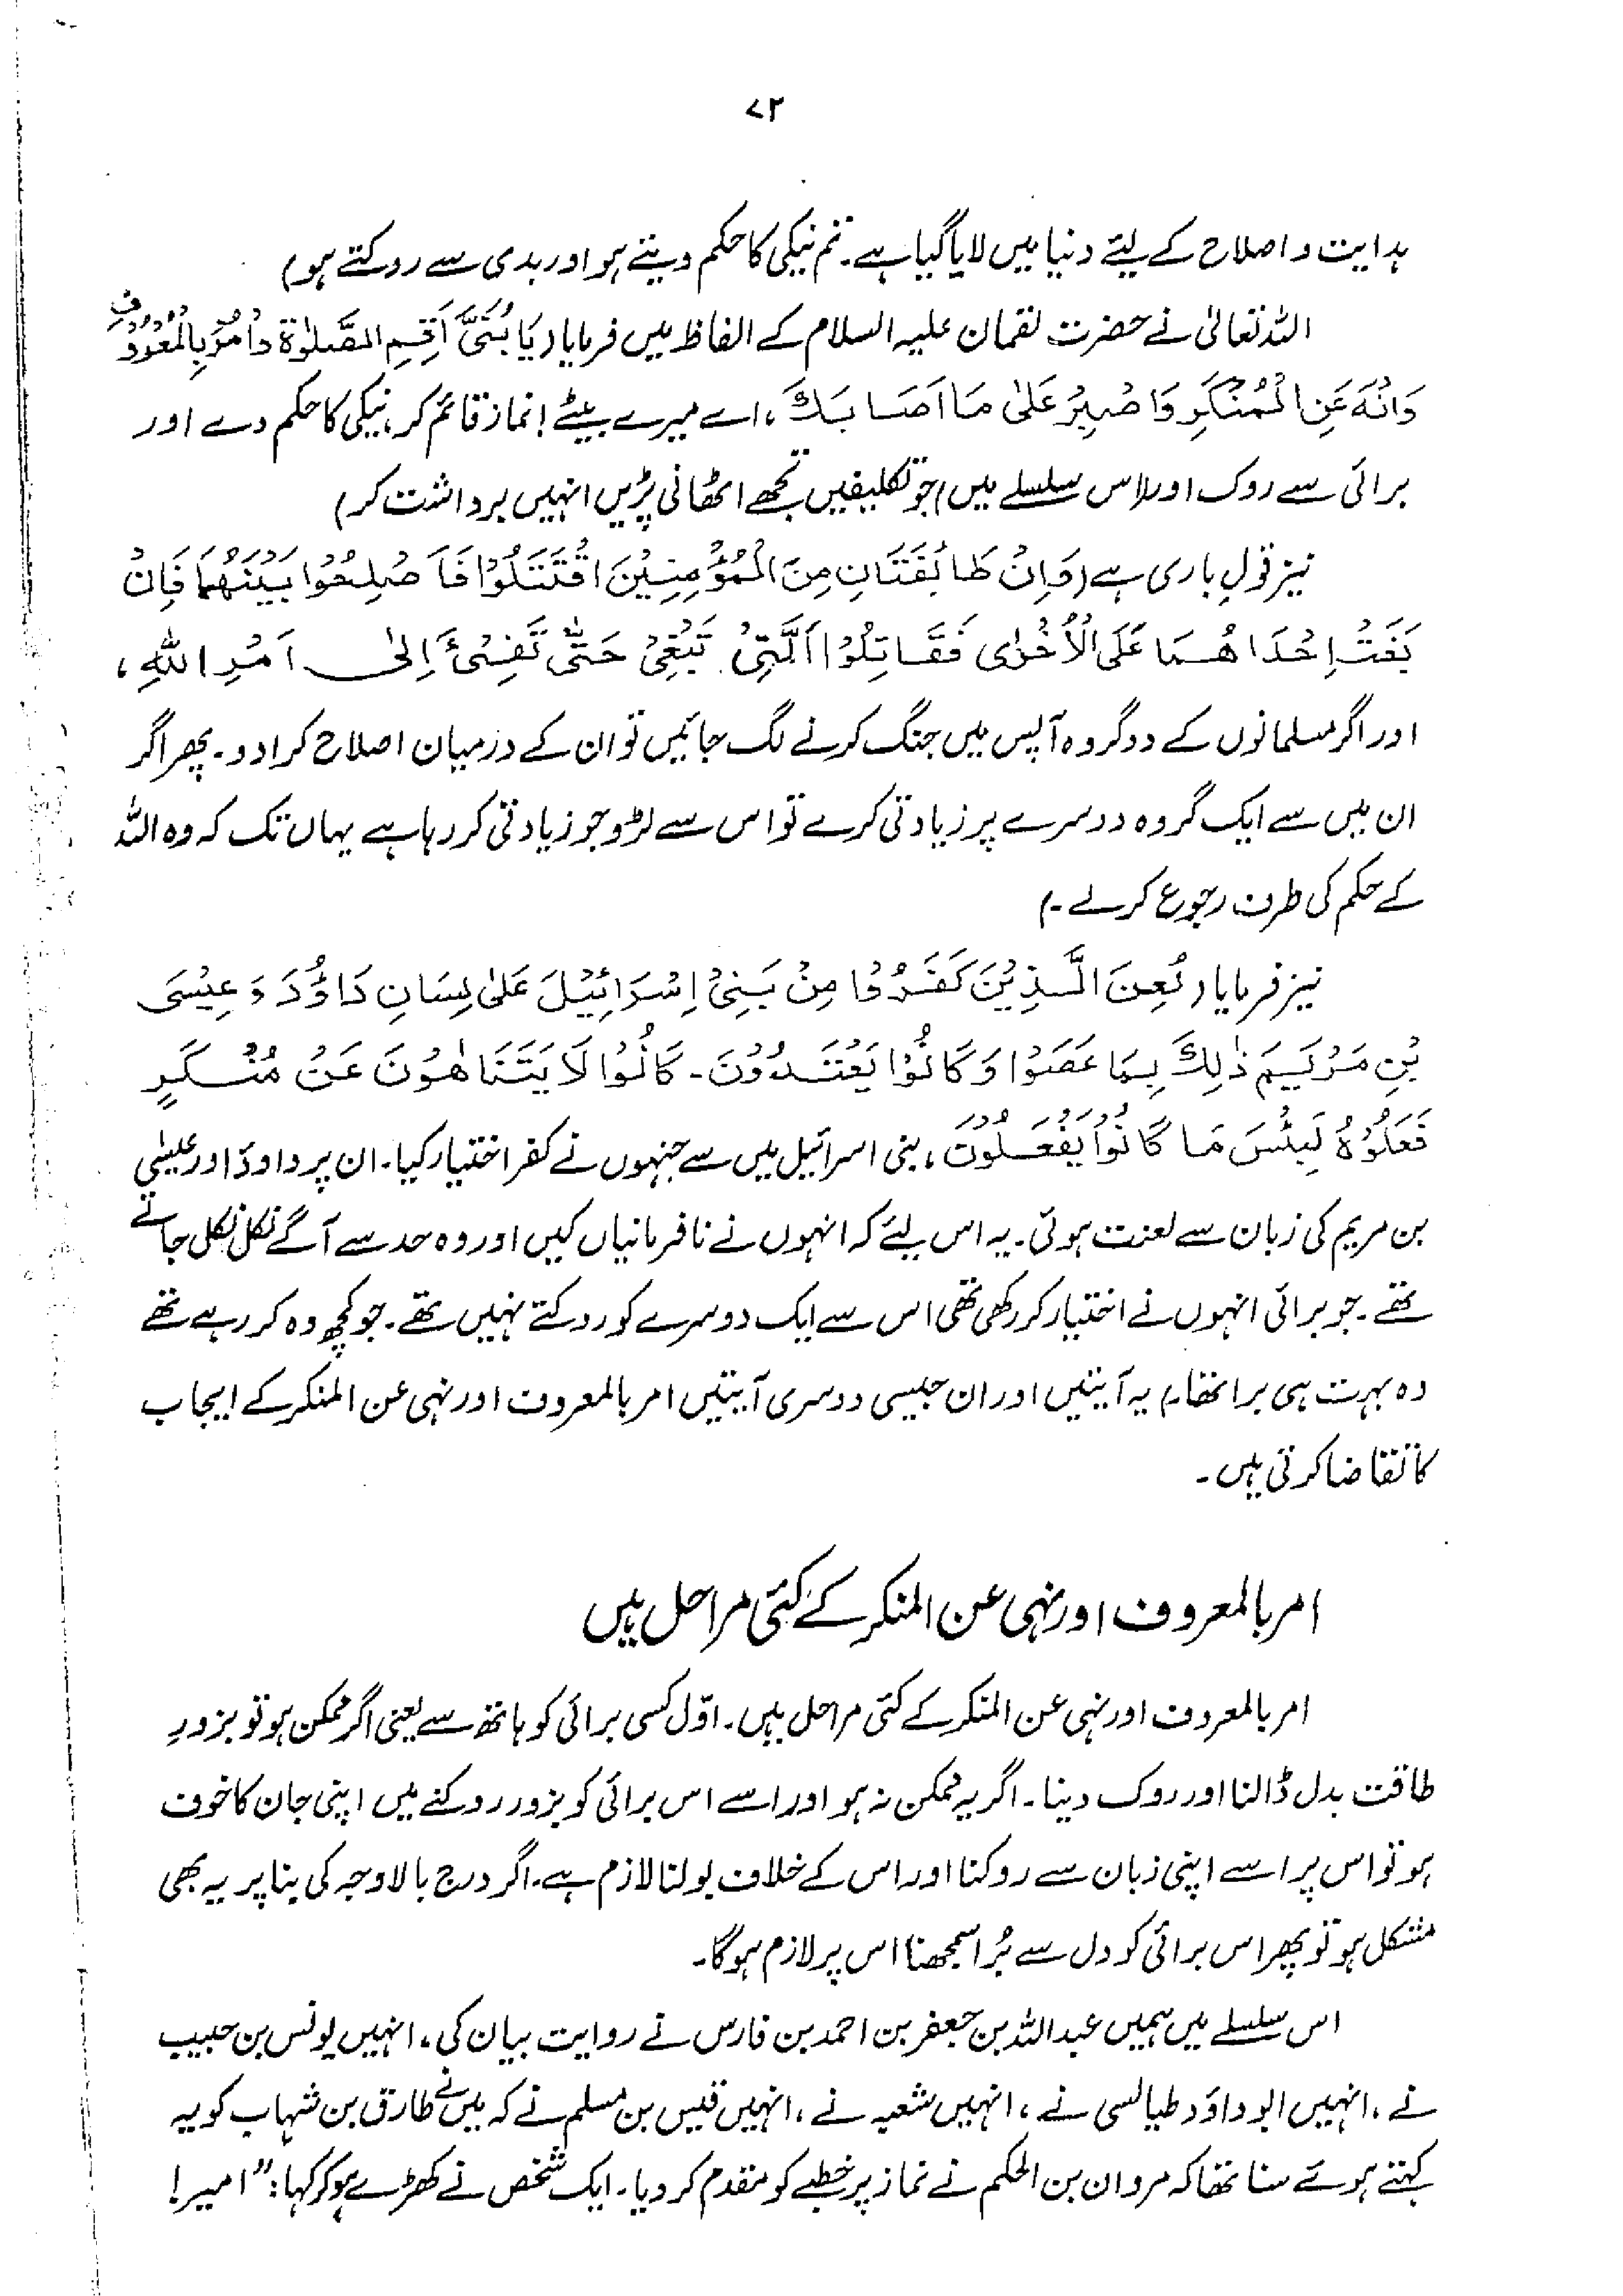 ۷۲
ہدایت و اصلاح کے لیئے دنیا میں لایا گیا ہے۔ تم نیکی کا حکم دیتے ہو اور بدی سے روکتے ہو)
اللہ تعالیٰ نے حضرت لقمان علیہ السلام کے الفاظ میں فرمایا (يَا بُنَيَّ أَقِمِ الصَّلٰوةَ وَأْمُرْ بِالْمَعْرُوْفِ
وَانْهَ عَنِ الْمُنْكَرِ وَاصْبِرْ عَلٰى مَا اَصَابَكَ، اے میرے بیٹے! نماز قائم کر، نیکی کا حکم دے اور
برائی سے روک اور (اس سلسلے میں) جو تکلیفیں تجھے اٹھانی پڑیں انہیں برداشت کر)
نیز قول باری ہے (وَاِنْ طَائِفَتَانِ مِنَ الْمُؤْمِنِيْنَ اقْتَتَلُوْا فَاَصْلِحُوْا بَيْنَهُمَا فَاِنْ
بَغَتْ اِحْدَاهُمَا عَلَى الْاُخْرٰى فَقَاتِلُوْا الَّتِيْ تَبْغِيْ حَتّٰى تَفِيْئَ اِلٰى اَمْرِ اللّٰهِ،
اور اگر مسلمانوں کے دو گروہ آپس میں جنگ کرنے لگ جائیں تو ان کے درمیان اصلاح کرا دو۔ پھر اگر
ان میں سے ایک گروہ دوسرے پر زیادتی کرے تو اس سے لڑو جو زیادتی کر رہا ہے یہاں تک کہ وہ اللہ
کے حکم کی طرف رجوع کرلے۔)
نیز فرمایا (لُعِنَ الَّذِيْنَ كَفَرُوْا مِنْ بَنِيْ اِسْرَائِيْلَ عَلٰى لِسَانِ دَاوُدَ وَعِيْسَى
بْنِ مَرْيَمَ ذٰلِكَ بِمَا عَصَوْا وَكَانُوْا يَعْتَدُوْنَ۔ كَانُوْا لَا يَتَنَاهَوْنَ عَنْ مُنْكَرٍ
فَعَلُوْهُ لَبِئْسَ مَا كَانُوْا يَفْعَلُوْنَ، بنی اسرائیل میں سے جنہوں نے کفر اختیار کیا۔ ان پر داوٗد اور عیسٰی
بن مریم کی زبان سے لعنت ہوئی۔ یہ اس لیئے کہ انہوں نے نافرمانیاں کیں اور وہ حد سے آگے نکل نکل جاتے
تھے۔ جو برائی انہوں نے اختیار کر رکھی تھی اس سے ایک دوسرے کو روکتے نہیں تھے۔ جو کچھ وہ کر رہے تھے
وہ بہت ہی برا تھا) یہ آیتیں اور ان جیسی دوسری آیتیں امر بالمعروف اور نہی عن المنکر کے ایجاب
کا تقاضا کرتی ہیں۔
امر بالمعروف اور نہی عن المنکر کے کئی مراحل ہیں
امر بالمعروف اور نہی عن المنکر کے کئی مراحل ہیں۔ اوّل کسی برائی کو ہاتھ سے یعنی اگر ممکن ہو تو بزورِ
طاقت بدل ڈالنا اور روک دینا۔ اگر یہ ممکن نہ ہو اور اسے اس برائی کو بزور روکنے میں اپنی جان کا خوف
ہو تو اس پر اسے اپنی زبان سے روکنا اور اس کے خلاف بولنا لازم ہے۔ اگر درج بالا وجہ کی بنا پر یہ بھی
مشکل ہو تو پھر اس برائی کو دل سے بُرا سمجھنا اس پر لازم ہوگا۔
اس سلسلے میں ہمیں عبداللہ بن جعفر بن احمد بن فارس نے روایت بیان کی، انہیں یونس بن حبیب
نے، انہیں ابوداؤد طیالسی نے، انہیں شعبہ نے، انہیں قیس بن مسلم نے کہ میں نے طارق بن شہاب کو یہ
کہتے ہوئے سنا تھا کہ مروان بن الحکم نے نماز پر خطبے کو مقدم کر دیا۔ ایک شخص نے کھڑے ہو کر کہا: "امیر!